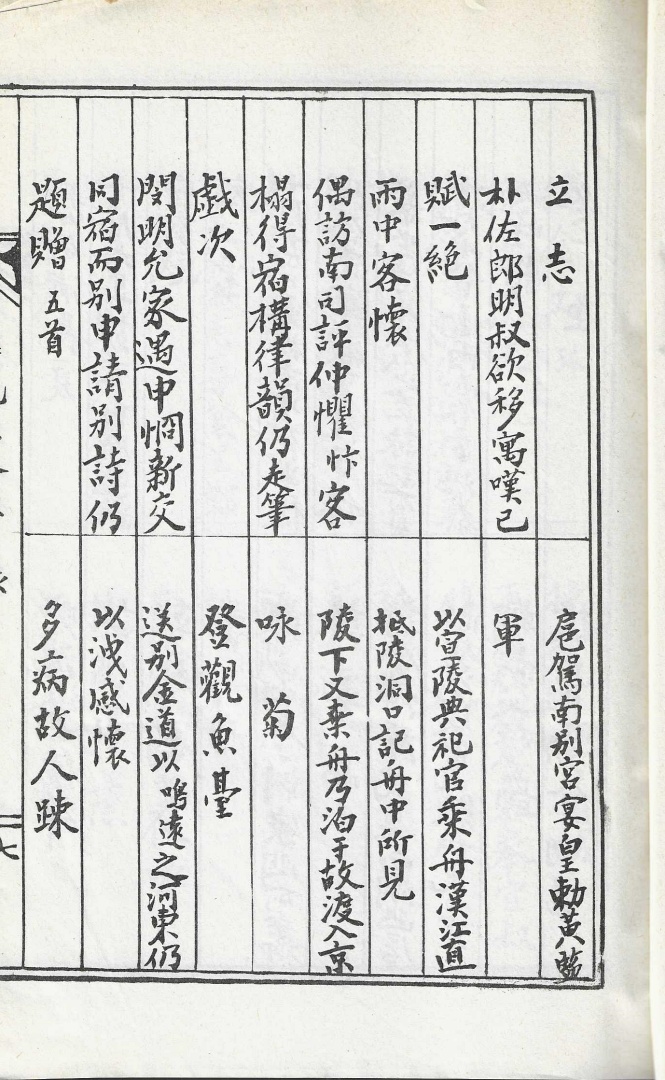 立志
朴佐郎明叔欲移寓嘆已
賦一絶
雨中客懷
偶訪南司評仲懼忭客
榻得宿構律韻仍走筆
戲次
閔明允家遇申惘新交
同宿而別申請別詩仍
題贈 五首
扈駕南別宮宴皇勅黃監
軍
以宣陵典祀官乘舟漢江直
抵陵洞口記舟中所見
陵下又乘舟乃泊于故渡入京
咏菊
登觀魚臺
送別金道以鳴遠之河東仍
以洩感懷
多病故人踈